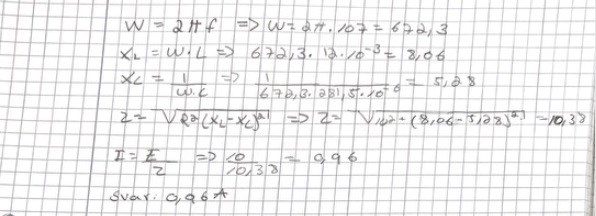 W = 2πf => W = 2π · 107 = 672,3
XL = W · L => 672,3 · 12 · 10^-3 = 8,06
XC = 1/(W·C) => 1/(672,3 · 281,5 · 10^-6) = 5,28
Z = √(R^2(XL-XC)^2) => Z = √(10^2 + (8,06-5,28)^2) = 10,38
I = E/Z => 10/10,38 = 0,96
Svar: 0,96 A